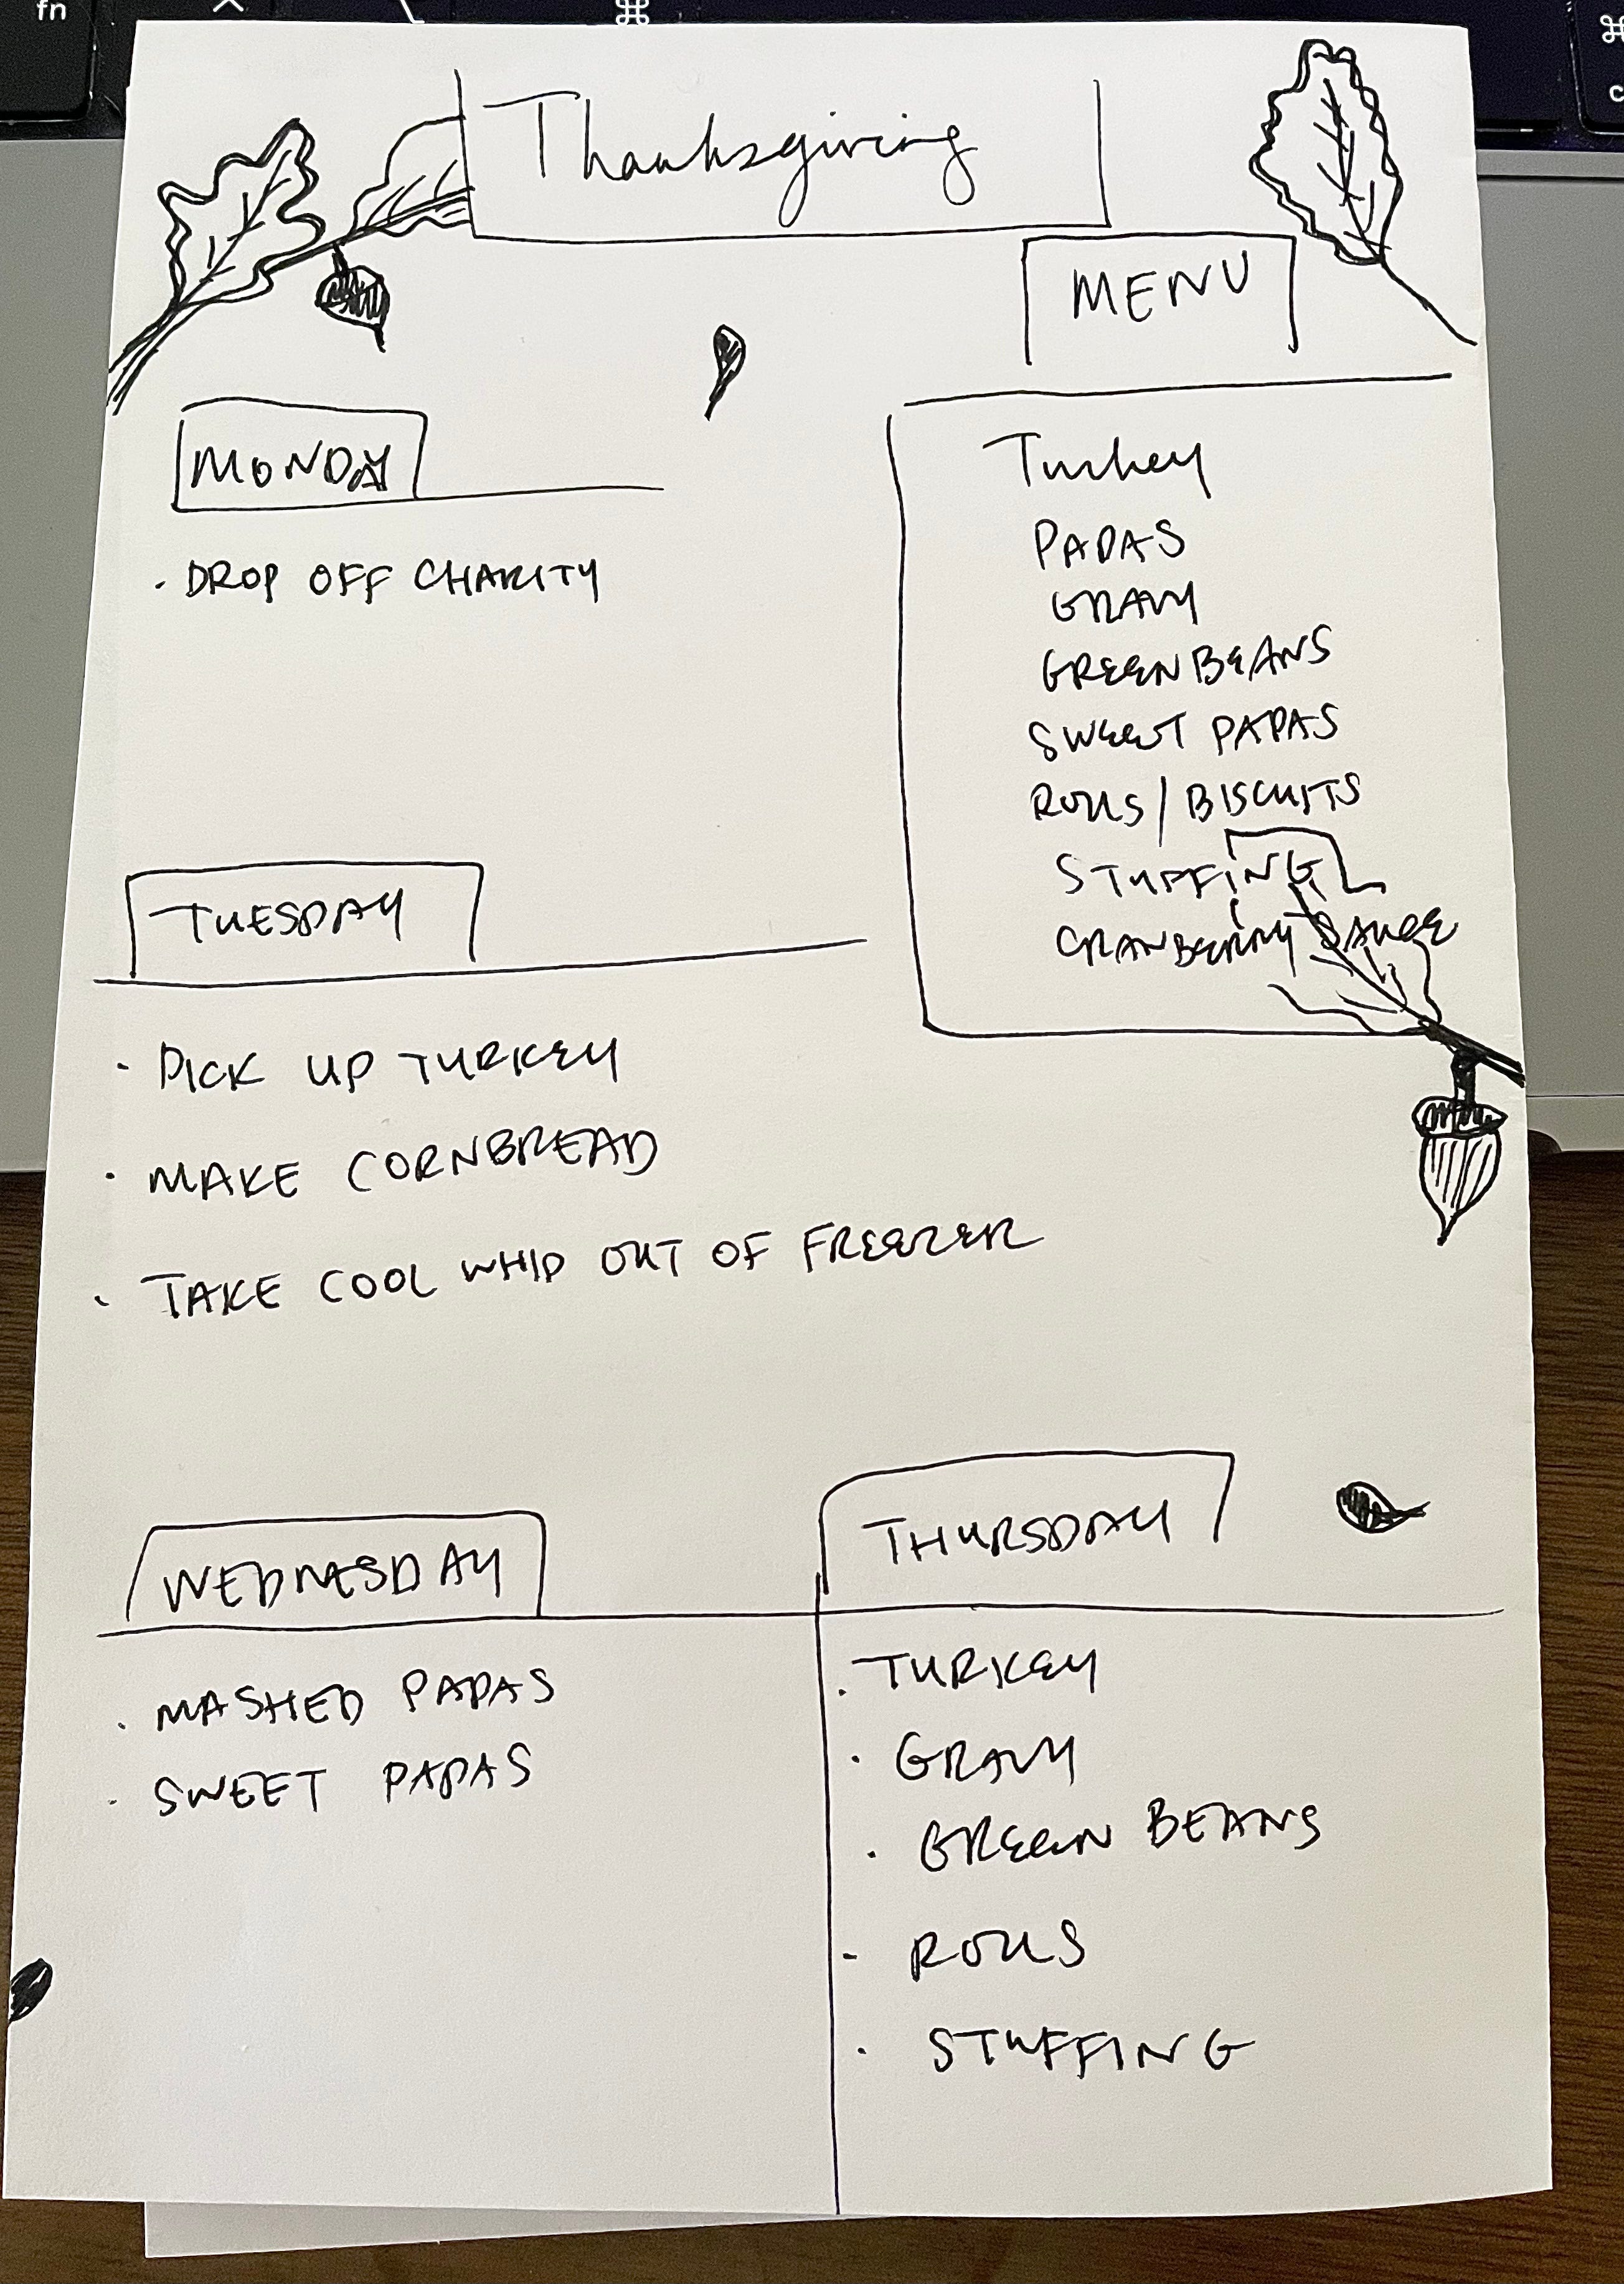 fn
Thanksgiving
MENU
Turkey
PAPAS
GRAVY
GREEN BEANS
SWEET PAPAS
ROLLS / BISCUITS
STUFFING
CRANBERRY SAUCE
MONDAY
· DROP OFF CHARITY
TUESDAY
· PICK UP TURKEY
· MAKE CORNBREAD
· TAKE COOL WHIP OUT OF FREEZER
WEDNESDAY
· MASHED PAPAS
· SWEET PAPAS
THURSDAY
· TURKEY
· GRAVY
· GREEN BEANS
- ROLLS
· STUFFING